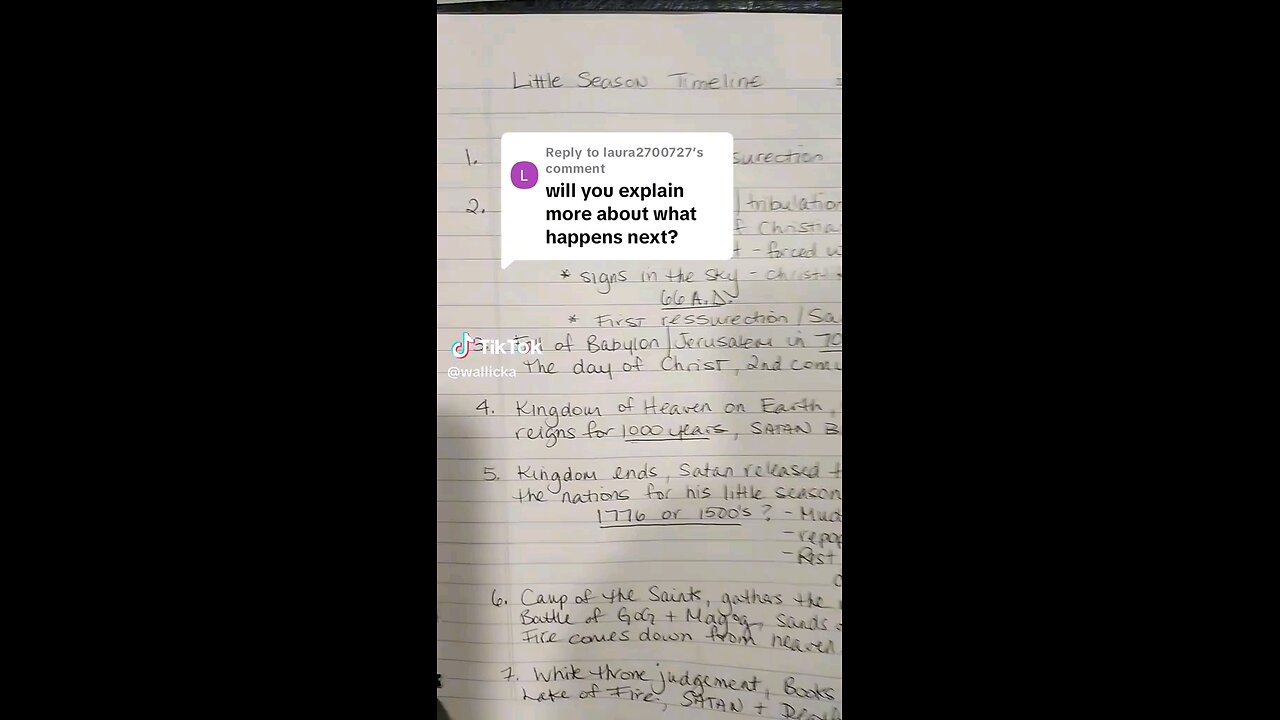 Little Season Timeline
Reply to laura2700727's
comment
L
will you explain
more about what
happens next?
1. surection
2. tribulation
f Christia
t - forced w
* signs in the sky - christ
66 A.D.
* First ressurection / Sa
3. of Babylon / Jerusalem in 70
TikTok
@wallicka
the day of Christ, 2nd com
4. Kingdom of Heaven on Earth,
reigns for 1000 years, SATAN B
5. Kingdom ends, Satan released t
the nations for his little season
1776 or 1500's ? - Mud
- repop
- Rest
6. Camp of the Saints, gathers the
Battle of GOG + Magog, sands
Fire comes down from heaven
7. White throne judgement, Books
Lake of Fire, SATAN + Death